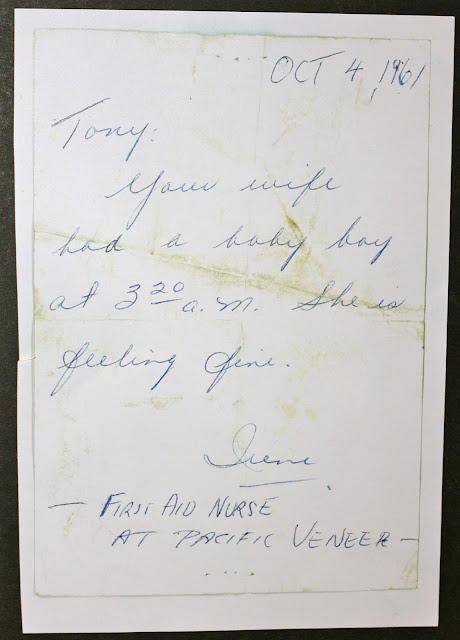 OCT 4, 1961
Tony:
Your wife
had a baby boy
at 3 20 a.m. She is
feeling fine.
Irene
— FIRST AID NURSE
AT PACIFIC VENEER —